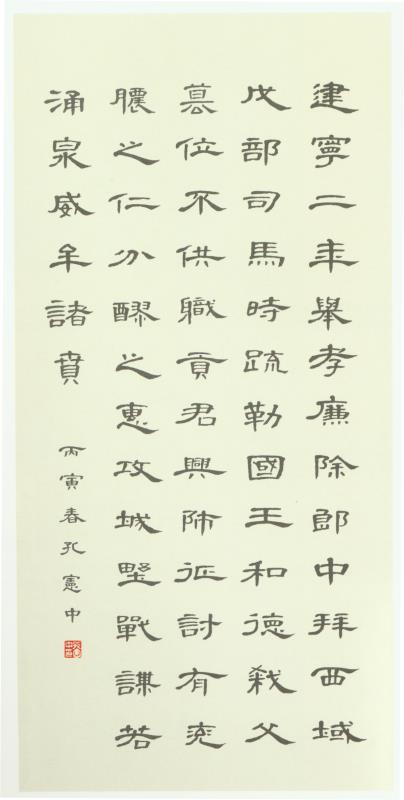 建寧二年舉孝廉除郎中拜西域
戊部司馬時疏勒國王和德弒父
篡位不供職貢君興師征討有兖
膿之仁分醪之惠攻城野戰謀若
涌泉威牟諸賁
丙寅春孔憲中